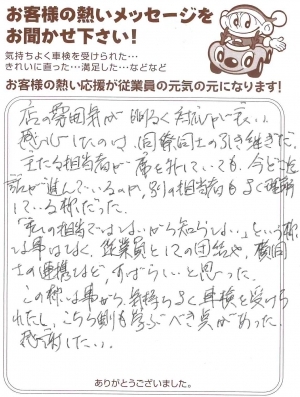 お客様の熱いメッセージを
お聞かせ下さい!
気持ちよく車検を受けられた…
きれいに直った…満足した…などなど
お客様の熱い応援が従業員の元気の元になります!
店の雰囲気が明るく対応が良い。
感心したのは、同僚同士の引き継ぎだ。
主たる担当者が席を外していても、今どこまで
話が進んでいるのか、別の担当者もよく理解
している様だった。
「私の担当ではないから知らない…」という様
な事はなく、従業員としての団結や、横同
士の連携など、すばらしいと思った。
この様な事から、気持ちよく車検を受けら
れたし、こちら側も学ぶべき点があった。
感謝したい。
ありがとうございました。